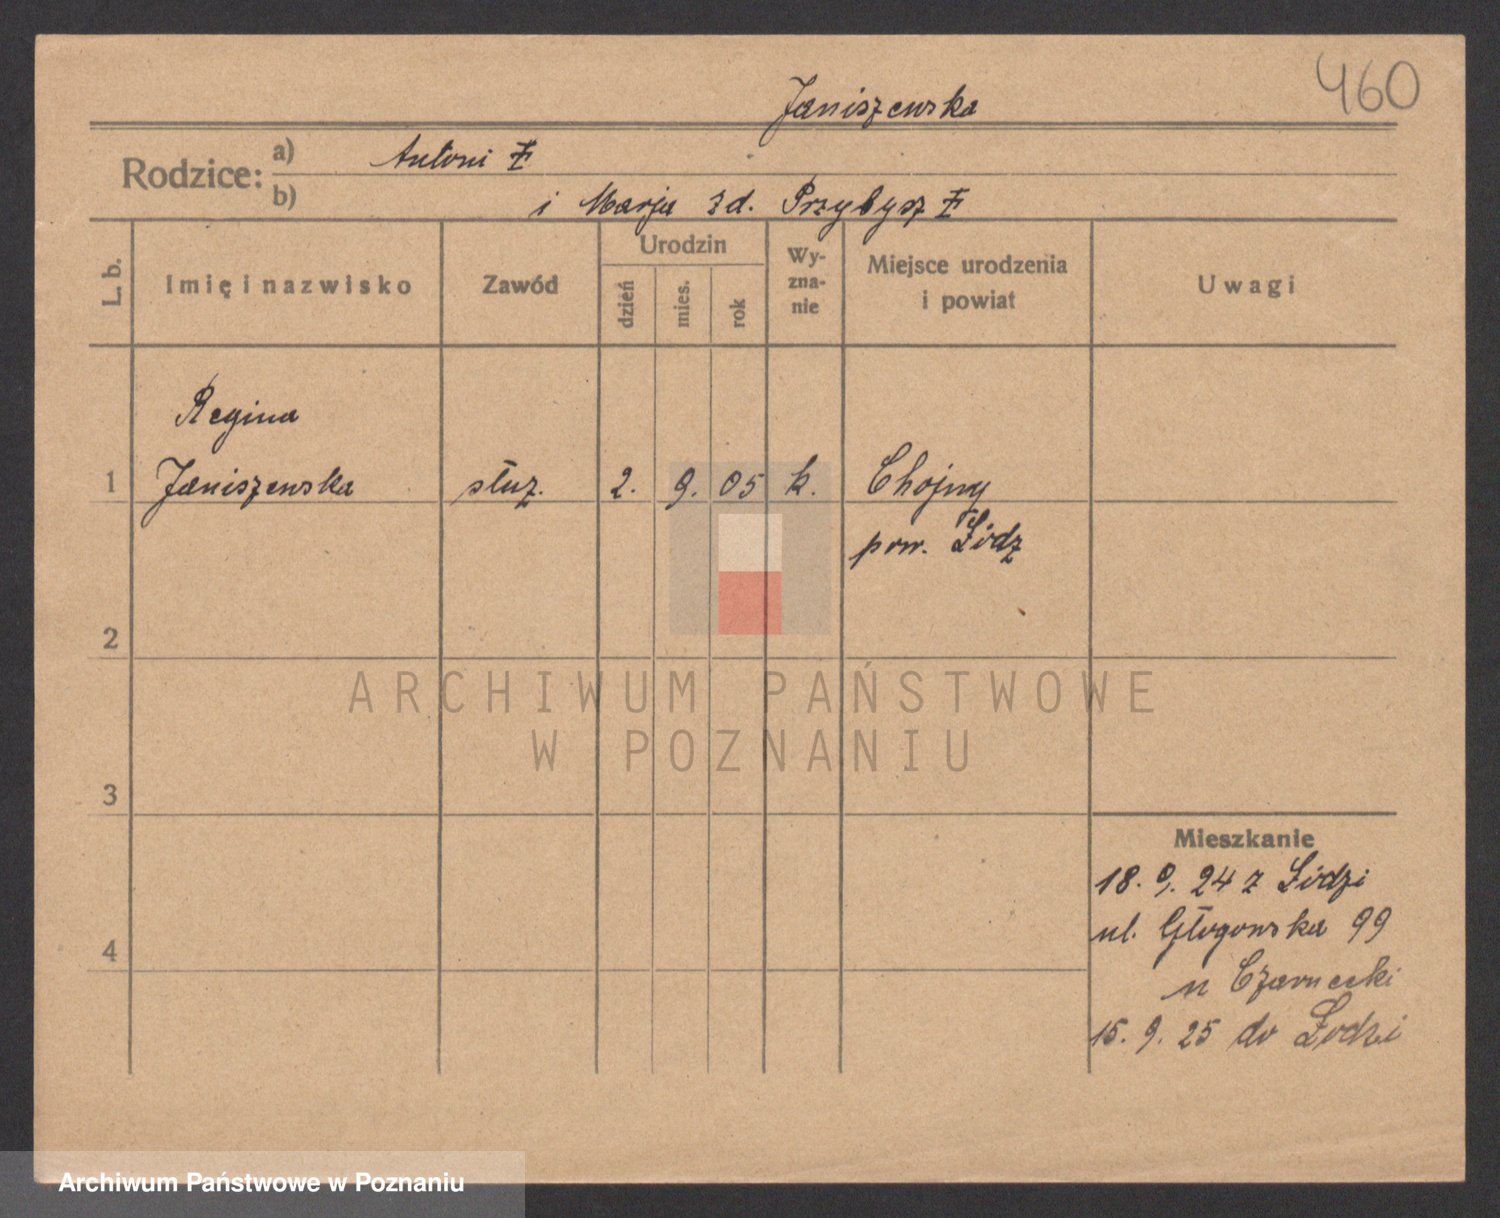 460
Janiszewska
Rodzice:
a) Antoni Ł
b) i Marja zd. Przybysz Ł
L. b.
Imię i nazwisko
Zawód
Urodzin
dzień
mies.
rok
Wy-
zna-
nie
Miejsce urodzenia
i powiat
Uwagi
Regina
1 Janiszewska służ. 2. 9. 05 k. Chojny
pow. Łódź
2
3
4
Mieszkanie
18. 9. 24 z Łódzi
ul. Głogowska 99
u Czarnecki
15. 9. 25 do Łodzi
ARCHIWUM PAŃSTWOWE
W POZNANIU
Archiwum Państwowe w Poznaniu